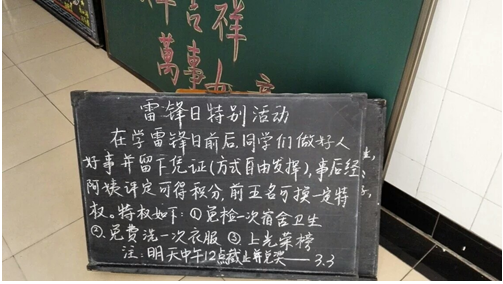 祥
萬事
雷锋日特别活动
在学雷锋日前后,同学们做好人
好事并留下凭证(方式自由发挥),事后经
阿姨评定可得积分,前五名可换一定特
权。特权如下:①免检一次宿舍卫生
②免费洗一次衣服 ③上光荣榜
注:明天中午12点截止并兑奖——3.3